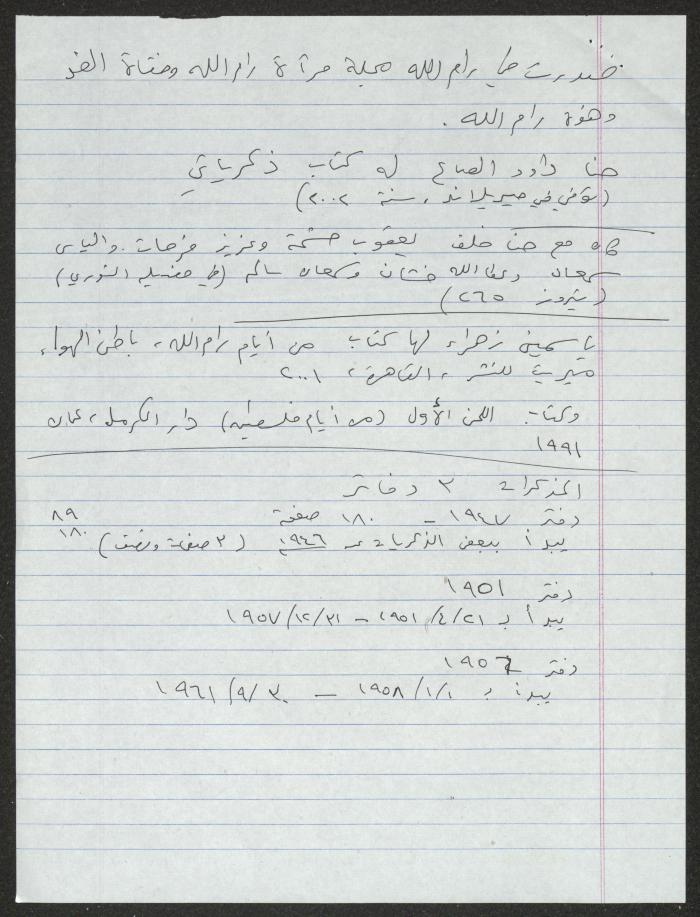 صدرت في رام الله مجلة مرآة رام الله وفتاة الغد
وهنوة رام الله.
حنا داود الصاع له كتاب ذكرياتي
(توفي في ميريلاند، سنة ٢٠٠٢)
كان مع حنا خلف يعقوب حشمة وعزيز فرحات. والياس
سمعان وعطا الله خشان وسمعان سالم (في
(تيزوز ٢٦٥)
ياسمين زهراء لها كتاب من أيام رام الله، باطن الهواء،
ميريت للنشر، القاهرة، ٢٠٠١
وكتاب اللحن الأول (من أيام فلسطين) دار الكرمل، عمان
١٩٩١
المذكرات ٣ دفاتر
دفتر ١٩٤٧ – ١٨٠ صفحة ٨٩
يبدأ ببعض الذكريات عن ١٩٤٦ (٢ صفحة ونصف) ١٨٠
دفتر ١٩٥١
يبدأ بـ ٢١/٤/١٩٥١ – ٣١/١٢/١٩٥٧
دفتر
يبدأ بـ ١/١/١٩٥٨ – ٣٠/٩/١٩٦١